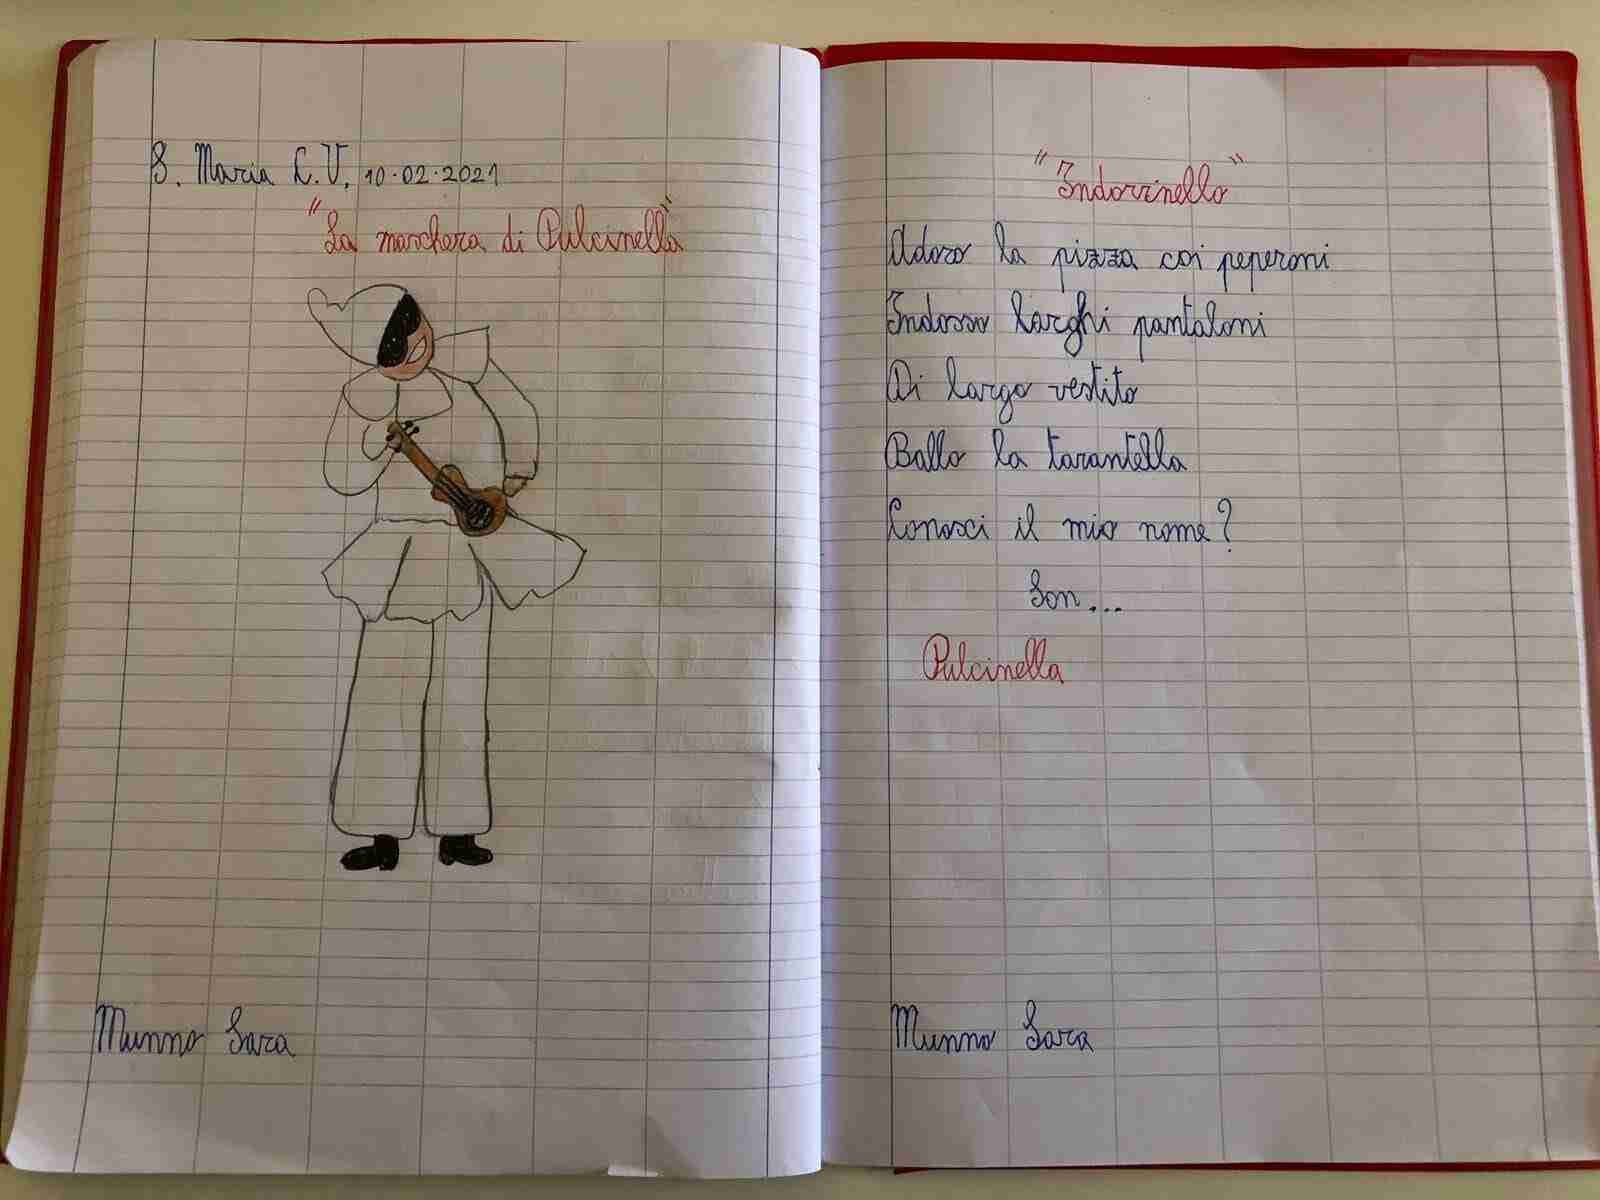 S. Maria C.V. 10.02.2021
"La maschera di Pulcinella"
Munno Sara
"Indovinello"
Adoro la pizza coi peperoni
Indosso larghi pantaloni
Di largo vestito
Ballo la tarantella
Conosci il mio nome?
Son...
Pulcinella
Munno Sara